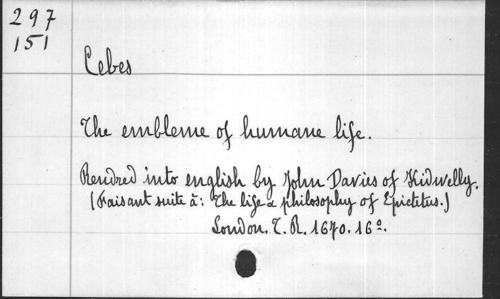 297
151
Cebes
The embleme of humane life.
Rendred into english by John Davies of Kidwelly.
(Faisant suite à: The life & philosophy of Epictetus.)
London. T. R. 1670. 16º.